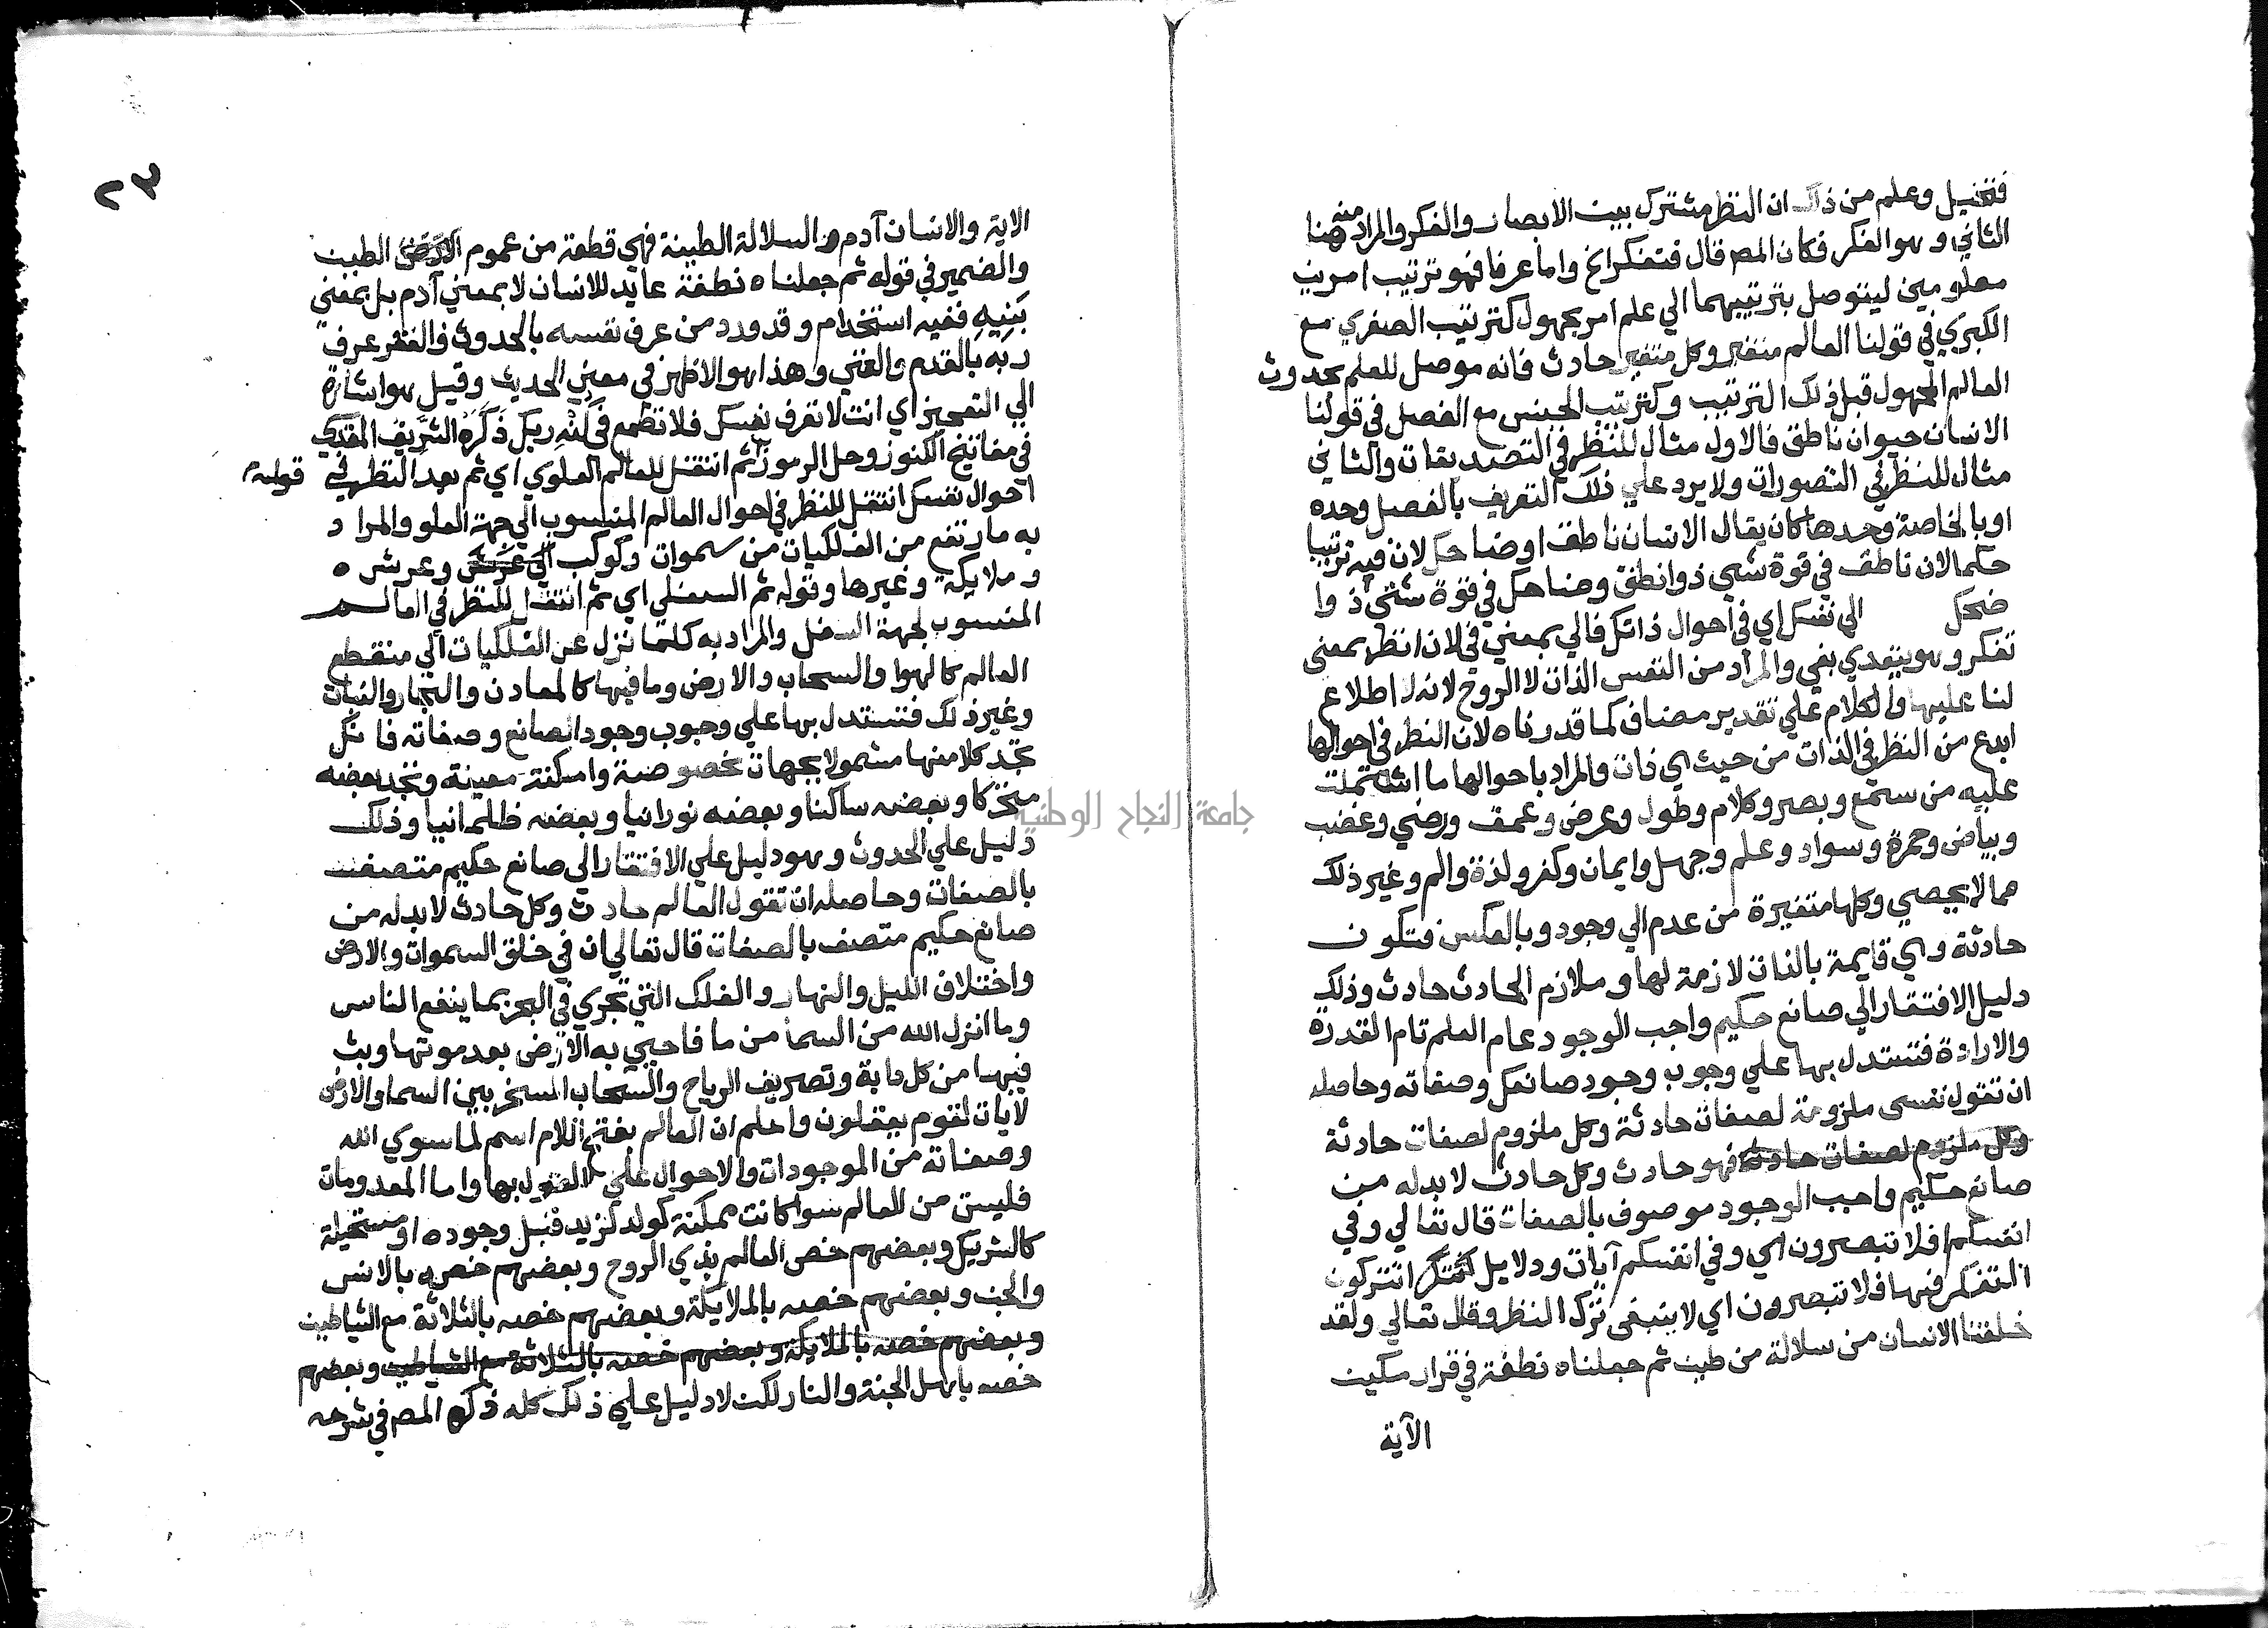 فتخيل وعلم من ذلك ان النظر مشترك بين الابصار والفكر والمراد منه هنا
الثاني وهو الفكر فكان المصر قال فتفكر الخ واما عرفا فهو ترتيب امرين
معلومين ليتوصل بترتيبهما الي علم امر مجهول كترتيب الصغري مع
الكبري في قولنا العالم متغير وكل متغير حادث فانه موصل للعلم بحدوث
العالم المجهول قبل ذلك الترتيب وكترتيب الجنس مع الفصل في قولنا
الانسان حيوان ناطق فالاول مثال للنظر في التصديقات والثاني
مثال للنظر في التصورات ولا يرد علي ذلك التعريف بالفصل وحده
او بالخاصة وحدها كان يقال الانسان ناطق او ضاحك لان فيه ترتيبا
حكما لان ناطق في قوة شي ذو انطق وضاحك في قوة شي ذوا
ضحك الي نفسك اي في احوال ذاتك فالي بمعني في لان انظر بمعني
تفكر وهو يتعدي بفي والمراد من النفس الذات لا الروح لانه لا اطلاع
لنا عليها والكلام علي تقدير مضاف كما قدرناه لان النظر في احوالها
ابدع من النظر في الذات من حيث هي ذات والمراد باحوالها ما اشتملت
عليه من سمع وبصر وكلام وطول وعرض وعمق ورضي وغضب
وبياض وحمرة وسواد وعلم وجهل وايمان وكفر ولذة والم وغير ذلك
مما لا يحصي وكلها متغيرة من عدم الي وجود وبالعكس فتكون
حادثة وهي قايمة بالذات لازمة لها وملازم الحادث حادث وذلك
دليل الافتقار الي صانع حكيم واجب الوجود عام العلم تام القدرة
والارادة فتستدل بها علي وجوب وجود صانعك وصفاته وحاصله
ان تقول نفسي ملزومة لصفات حادثة وكل ملزوم لصفات حادثة
وكل ملزوم لصفات حادثة فهو حادث وكل حادث لا بد له من
صانع حكيم واجب الوجود موصوف بالصفات قال تعالي وفي
انفسكم افلا تبصرون اي وفي انفسكم آيات ودلايل اتتركون
التفكر فيها فلا تبصرون اي لا ينبغي ترك النظر وقال تعالي ولقد
خلقنا الانسان من سلالة من طين ثم جعلناه نطفة في قرار مكين
الآية
٢٣
الاية والانسان آدم والسلالة الطينة فهي قطعة من عموم الطين
والضمير في قوله ثم جعلناه نطفة عايد للانسان لا بمعني آدم بل بمعني
بَنِيهِ ففيه استخدام وقد ورد من عرف نفسه بالحدوث والفقر عرف
ربه بالقدم والغني وهذا هو الاظهر في معني الحديث وقيل هو اشارة
الي التعجيز اي انت لا تعرف نفسك فلا تطمع في كنه ربك ذكره الشريف المقدسي
في مفاتيح الكنوز وحل الرموز ثم انتقل للعالم العلوي اي ثم بعد النظر في
قوله
احوال نفسك انتقل للنظر في احوال العالم المنسوب الي جهة العلو والمراد
به ما ارتفع من الفلكيات من سموات وكوكب وعرش
وملايكة وغيرها وقوله ثم السفلي اي ثم انتقل للنظر في العالم
المنسوب لجهة السفل والمراد به كلما نزل عن الفلكيات الي منقطع
العالم كالهوا والسحاب والارض وما فيها كالمعادن والبحار والنبات
وغير ذلك فتستدل بها علي وجوب وجود الصانع وصفاته فانك
تجد كلا منها مشمولا بجهات مخصوصة وامكنة معينة وتجد بعضه
متحركا وبعضه ساكنا وبعضه نورانيا وبعضه ظلمانيا وذلك
دليل علي الحدوث وهو دليل علي الافتقار الي صانع حكيم متصف
بالصفات وحاصله ان تقول العالم حادث وكل حادث لا بد له من
صانع حكيم متصف بالصفات قال تعالي ان في خلق السموات والارض
واختلاف الليل والنهار والفلك التي تجري في البحر بما ينفع الناس
وما انزل الله من السما من ما فاحيي به الارض بعد موتها وبث
فيها من كل دابة وتصريف الرياح والسحاب المسخر بين السما والارض
لايات لقوم يعقلون واعلم ان العالم بفتح اللام اسم لما سوي الله
وصفاته من الموجودات والاحوال علي القول بها واما المعدومات
فليست من العالم سوا كانت ممكنة كولد لزيد قبل وجوده او مستحيلة
كالشريك وبعضهم خص العالم بذي الروح وبعضهم خصه بالانس
والجن وبعضهم خصه بالملايكة وبعضهم خصه بالثلاثة مع الشياطين
وبعضهم خصه بالملايكة وبعضهم خصه بالثلاثة مع الشياطين وبعضهم
خصه باهل الجنة والنار لكن لا دليل علي ذلك كله ذكره المصر في شرحه
جامعة النجاح الوطنية